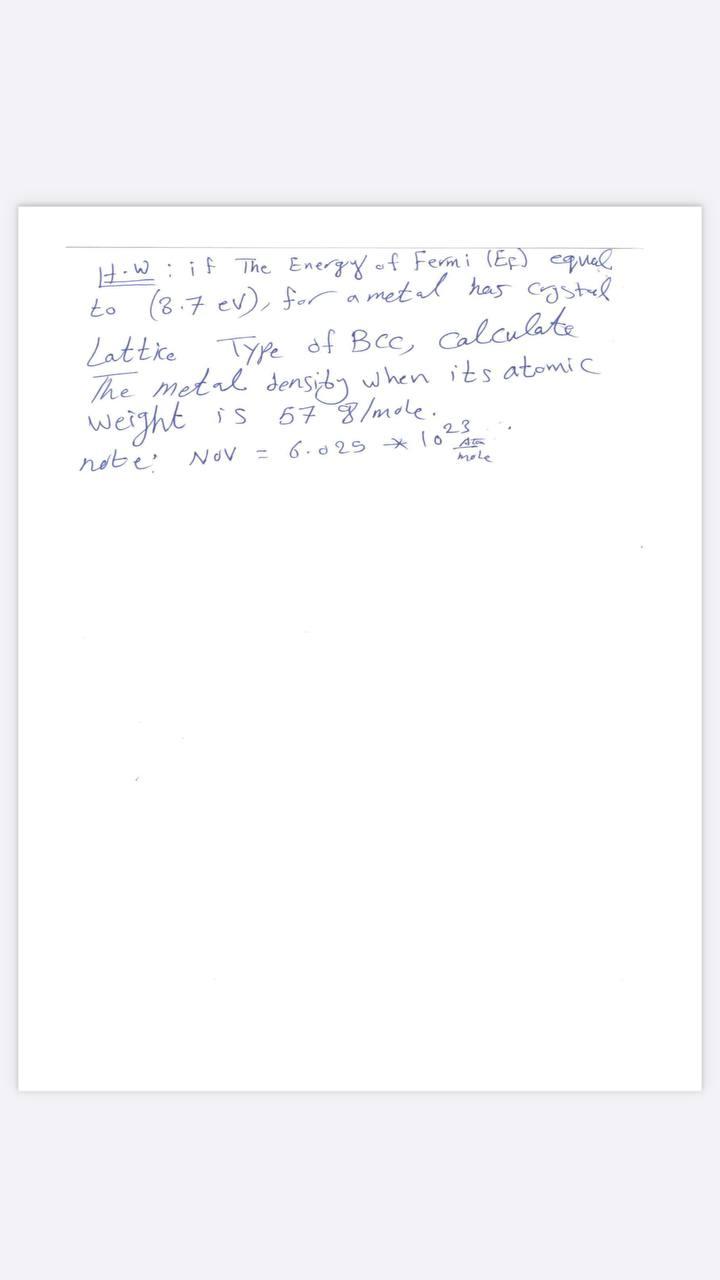 H.W : if The Energy of Fermi (EF) equal
to (8.7 eV), for a metal has crystal
Lattice Type of BCC, calculate
The metal density when its atomic
weight is 57 g/mole.
note: NoV = 6.025 * 10^23 Ato/mole